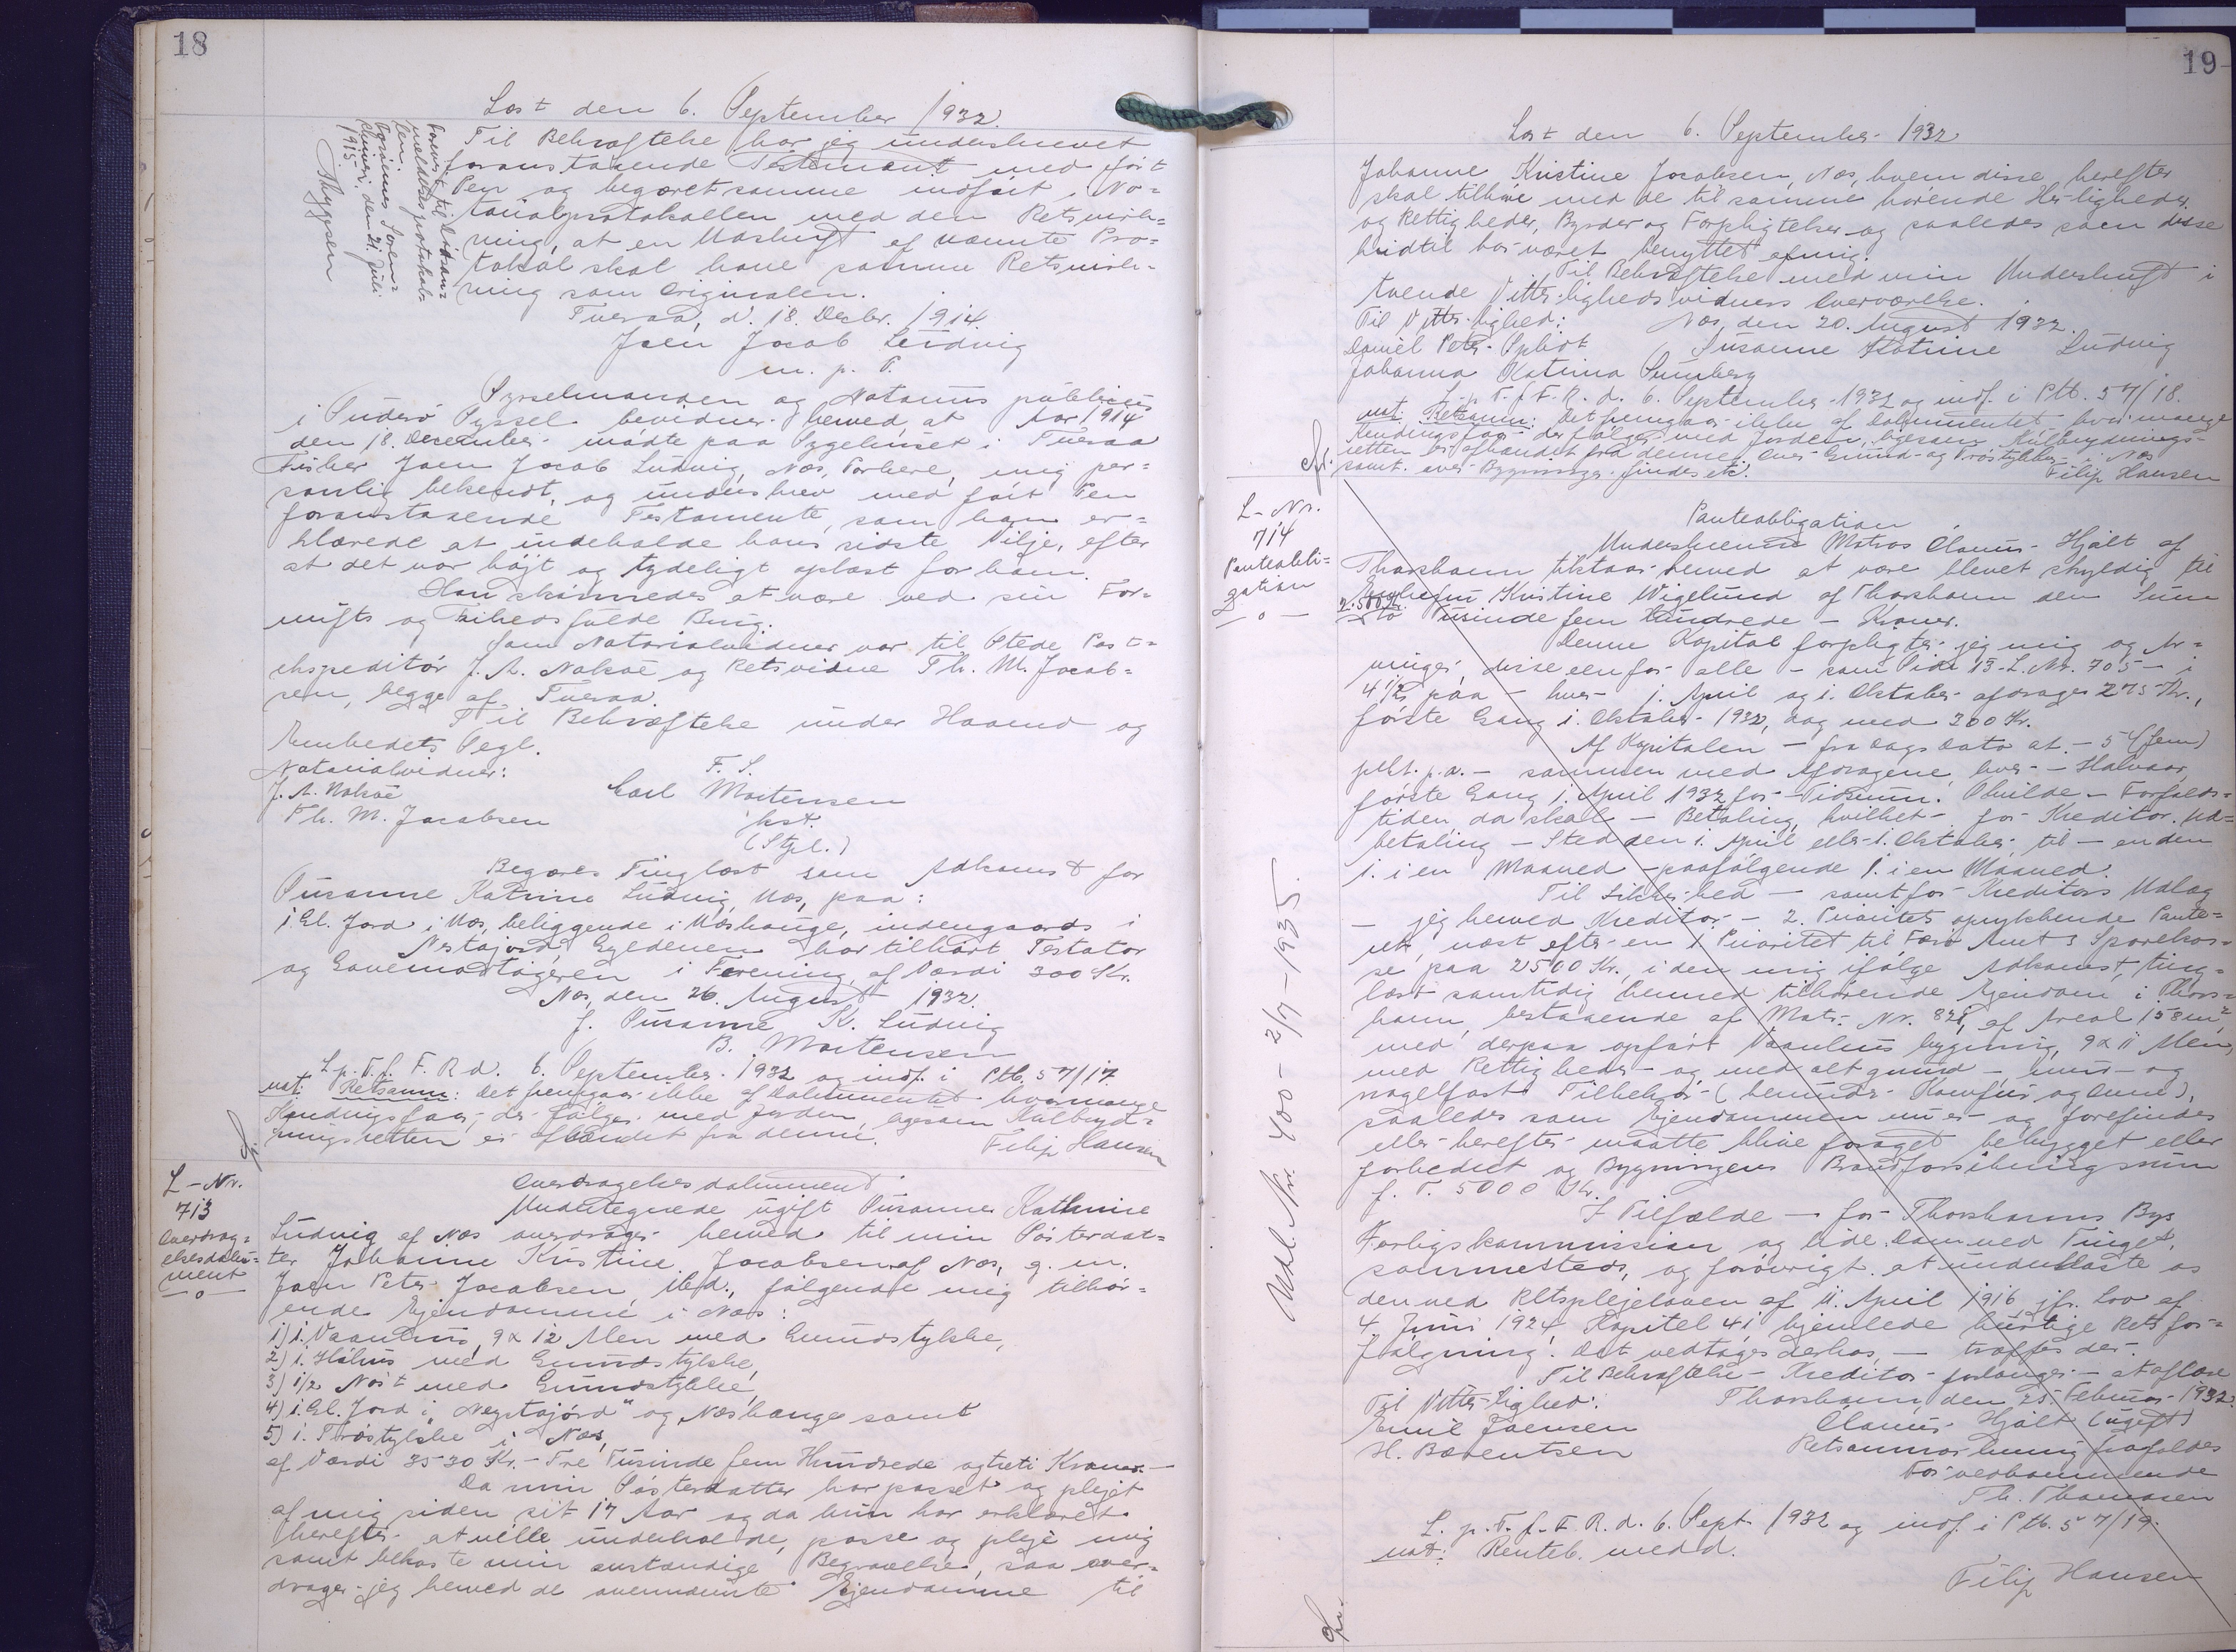 18
Læst den 6. September 1932.
Til Bekræftelse har jeg underskrevet
foranstaaende Testament med ført
Pen og begæret samme indført i No=
tarialprotokollen med den Retsvirk=
ning, at en Udskrift af nævnte Pro=
tokol skal have samme Retsvirk=
ning som Originalen.
Tveraa, d. 18. Decbr. 1914.
Joen Jacob Ludvig
m. p. P.
1915
Thygesen
Sysselmanden og Notarius publicus
i Suderø Syssel bevidner herved, at Aar 1914
den 18. December mødte paa Sygehuset i Tveraa
Fisker Joen Jacob Ludvig, Næs, Porkere, mig per=
sonlig bekendt, og underskrev med ført Pen
foranstaaende Testamente, som han er=
klærede at indeholde hans sidste Vilje, efter
at det var højt og tydeligt oplæst for ham.
Han skønnedes at være ved sin For=
nufts og fuldе Brug.
Som Notarialvidner var til Stede Post=
ekspeditør J. A. Nolsøe og Retsvidne Th. M. Jacob=
sen, begge af Tveraa.
Til Bekræftelse under Haand og
Embedets Segl.
Notarialvidner: F. S.
J. A. Nolsøe Carl Mortensen
Th. M. Jacobsen kst.
(Sgl.)
Begæres Tinglæst som Adkomst for
Susanne Katrine Ludvig, Næs, paa:
1 Gl. Jord i Næs, beliggende i Næshauge, indengaards i
har tilhørt Testator
og Gavemodtageren i Forening af Værdi 300 Kr.
Næs, den 26. August 1932.
f. Susanne K. Ludvig
B. Mortensen
L. p. T. f. F. R. d. 6. September 1932 og indf. i Ptb. 57/17.
not. Retsanm: Det fremgaar ikke af Dokumentet hvormange
Hændingsfaar, der følger med Jorden, ligesom Kulbryd=
ningsretten er afhændet fra denne.
Filip Hansen
L-Nr.
713
Overdrag=
elsesdoku=
ment
—o—
Overdragelsesdokument
Undertegnede ugift Susanne Kathrine
Ludvig af Næs overdrager herved til min Søsterdat=
ter Johanne Kristine Jacobsen af Næs, g. m.
Joen Peter Jacobsen, ibd., følgende mig tilhør=
ende Ejendomme i Næs:
1) 1. Vaanhus, 9 x 12 Alen med Grundstykke,
2) 1. Hjálhus med Grundstykke,
3) 1/2 Nøst med Grundstykke,
4) 1 Gl. Jord i "Neystajørd" og Næshauge samt
5) 1. Trøstykke i Næs,
af Værdi 3530 Kr. - Tre Tusinde fem Hundrede og treti Kroner.—
Da min Søsterdatter har passet og plejet
af mig siden sit 17 Aar og da hun har erklæret
herefter at ville underholde, passe og pleje mig
samt bekoste min anstændige Begravelse, saa over=
drager jeg herved de ovennævnte Ejendomme til
19
Læst den 6. September 1932
Johanne Kristine Jacobsen, Næs, hvem disse herefter
skal tilhøre med de til samme hørende Herligheder
og Rettigheder, Byrder og Forpligtelser og saaledes som disse
hidtil har været benyttet af mig.
Til Bekræftelse med min Underskrift i
tvende Vitterlighedsvidners Overværelse.
Næs, den 20. August 1932.
Til Vitterlighed: Susanne Katrine Ludvig
Daniel Peter
Johanna Katrina Sumberg
L. p. T. f. F. R. d. 6. September 1932 og indf. i Ptb. 57/18.
not. Retsanm: Det fremgaar ikke af Dokumentet, hvor mange
Hændingsfaar der følger med Jorden, ligesom Kulbrydnings=
retten er afhændet fra denne. Over Grund- og Trøstykker i Næs
samt over Bygninger findes
Filip Hansen
L-Nr.
714
Panteobli=
gation
—o—
Panteobligation
Underskrevne Matros Clæmus Hjált af
Thorshavn tilstaar herved at være blevet skyldig til
Kristine Wigelund af Thorshavn den Sum
2.500 Kr.
To Tusinde fem Hundrede - Kroner.
Denne Kapital forpligter jeg mig og Ar=
vinger, disse een for alle - som Side 13-L. Nr. 705 - i
4 1/2 paa - hver 1. April og 1. Oktober afdrages 275 Kr.,
første Gang 1. Oktober 1932, dog med 300 Kr.
Af Kapitalen - fra Dags Dato at - 5 % (fem)
pCt. p. a. - sammen med Afdragene hver - Halvaar,
første Gang 1. April 1932 for - Tidsrum. Skulde - Forfalds=
tiden da skal - Betaling, hvilket - for Kreditor. Ud=
betaling - Sted den 1. April eller 1. Oktober til - en den
1. i en Maaned - paafølgende 1. i en Maaned.
Til Sikkerhed - samt for Kreditors Udlæg
- jeg herved Kreditor - 2. Prioritets oprykkende Pante=
ret, næst efter en 1. Prioritet til Færø Amts Sparekas=
se paa 2500 Kr., i den mig ifølge Adkomst, ting=
læst samtidig hermed tilhørende Ejendom i Thors=
havn, bestaaende af Matr. Nr. 82i, af Areal 158 m²,
med derpaa opført Vaanhus bygning, 9 x 11 Alen,
med Rettigheder og med alt grund- mur- og
nagelfast Tilbehør (herunder Komfur og Ovne),
saaledes som Ejendommen nu er og forefindes
eller herefter maatte blive forøget bebygget eller
forbedret og Bygningens Brandforsikringssum
p. T. 5000 Kr.
I Tilfælde - for Thorshavns Bys
Forligskommission og lide Dom ved Tinget
sammesteds, og forøvrigt at underkaste os
den ved Retsplejeloven af 11. April 1916 jfr. Lov af
4. Juni 1924, Kapitel 41 hjemlede hurtige Retsfor=
følgning. Det vedtages derhos, - træffes der.
Til Bekræftelse - Kreditor - forlanger - at aflæse
Thorshavn, den 25. Februar 1932.
Til Vitterlighed: Clæmus Hjált (ugift)
Emil Joensen
H. Bærentsen
Retsanmærkning frafaldes
For vedkommende
Th. Thomsen
L. p. T. f. F. R. d. 6. Sept 1932 og indf. i Ptb. 57/19.
not: Renteb. medd.
Filip Hansen
Udl. Nr. 400 - 2/7 - 1935.